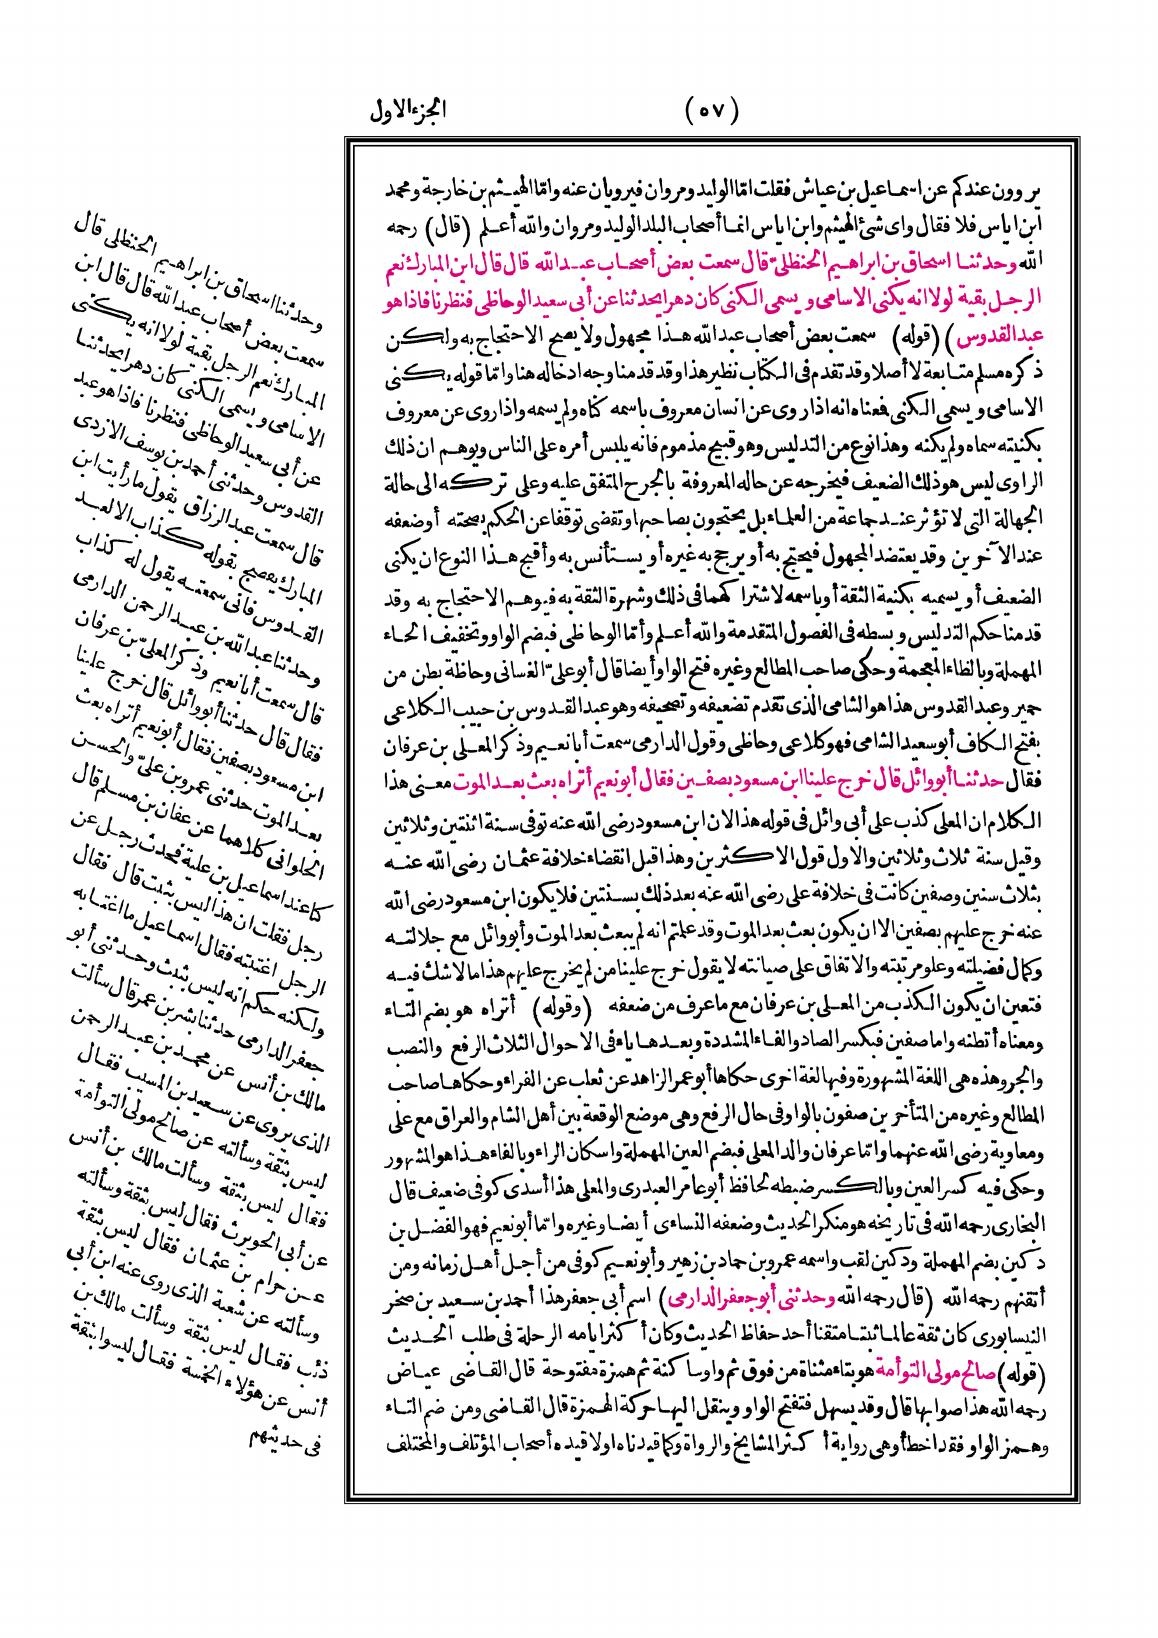 (٥٧)
الجزء الاول
يروون عندكم عن اسماعيل بن عياش فقلت امّا الوليد ومروان فيرويان عنه وامّا الهيثم بن خارجة ومحمد
ابن اياس فلا فقال واى شئ الهيثم وابن اياس انما أصحاب البلد الوليد ومروان والله أعلم (قال) رحمه
الله وحدثنا اسحاق بن ابراهيم الحنظلىّ قال سمعت بعض أصحاب عبد الله قال قال ابن المبارك نعم
الرجل بقية لولا انه يكنى الاسامى ويسمى الكنى كان دهرا يحدثنا عن أبى سعيد الوحاظى فنظرنا فاذا هو
عبد القدوس) (قوله) سمعت بعض أصحاب عبد الله هذا مجهول ولا يصح الاحتجاج به ولكن
ذكره مسلم متابعة لا أصلا وقد تقدم فى الكتاب نظير هذا وقد قدمنا وجه ادخاله هنا وامّا قوله يكنى
الاسامى ويسمى الكنى فمعناه انه اذا روى عن انسان معروف باسمه كناه ولم يسمه واذا روى عن معروف
بكنيته سماه ولم يكنه وهذا نوع من التدليس وهو قبيح مذموم فانه يلبس أمره على الناس ويوهم ان ذلك
الراوى ليس هو ذلك الضعيف فيخرجه عن حاله المعروفة بالجرح المتفق عليه وعلى تركه الى حالة
الجهالة التى لا تؤثر عند جماعة من العلماء بل يحتجون بصاحبها وتقضى توقفا عن الحكم بصحته أوضعفه
عند الآخرين وقد يعتضد المجهول فيحتج به أو يرجح به غيره أو يستأنس به وأقبح هذا النوع ان يكنى
الضعيف أو يسميه بكنية الثقة أو باسمه لاشتراكهما فى ذلك وشهرة الثقة به فيوهم الاحتجاج به وقد
قدمنا حكم التدليس وبسطه فى الفصول المتقدمة والله أعلم وأمّا الوحاظى فبضم الواو وتخفيف الحاء
المهملة وبالظاء المعجمة وحكى صاحب المطالع وغيره فتح الواو أيضا قال أبو علىّ الغسانى وحاظة بطن من
حمير وعبد القدوس هذا هو الشامى الذى تقدم تضعيفه وتصحيفه وهو عبد القدوس بن حبيب الكلاعى
بفتح الكاف أبو سعيد الشامى فهو كلاعى وحاظى وقول الدارمى سمعت أبا نعيم وذكر المعلى بن عرفان
فقال حدثنا أبو وائل قال خرج علينا ابن مسعود بصفين فقال أبو نعيم أتراه بعث بعد الموت معنى هذا
الكلام ان المعلى كذب على أبى وائل فى قوله هذا لان ابن مسعود رضى الله عنه توفى سنة اثنتين وثلاثين
وقيل سنة ثلاث وثلاثين والاول قول الاكثرين وهذا قبل انقضاء خلافة عثمان رضى الله عنه
بثلاث سنين وصفين كانت فى خلافة على رضى الله عنه بعد ذلك بسنتين فلا يكون ابن مسعود رضى الله
عنه خرج عليهم بصفين الا ان يكون بعث بعد الموت وقد علمتم انه لم يبعث بعد الموت وأبو وائل مع جلالته
وكمال فضيلته وعلو مرتبته والاتفاق على صيانته لا يقول خرج علينا من لم يخرج عليهم هذا ما لا شك فيه
فتعين ان يكون الكذب من المعلى بن عرفان مع ما عرف من ضعفه (وقوله) أتراه هو بضم التاء
ومعناه أتظنه واما صفين فبكسر الصاد والفاء المشددة وبعدها ياء فى الاحوال الثلاث الرفع والنصب
والجر وهذه هى اللغة المشهورة وفيها لغة اخرى حكاها أبو عمر الزاهد عن ثعلب عن الفراء وحكاها صاحب
المطالع وغيره من المتأخرين صفون بالواو فى حال الرفع وهى موضع الوقعة بين أهل الشام والعراق مع على
ومعاوية رضى الله عنهما واتما عرفان والد المعلى فبضم العين المهملة واسكان الراء وبالفاء هذا هو المشهور
وحكى فيه كسر العين وبالكسر ضبطه الحافظ أبو عامر العبدرى والمعلى هذا أسدى كوفى ضعيف قال
البخارى رحمه الله فى تاريخه هو منكر الحديث وضعفه النساءى أيضا وغيره واتما أبو نعيم فهو الفضل بن
دكين بضم المهملة ودكين لقب واسمه عمرو بن حماد بن زهير وأبو نعيم كوفى من أجل أهل زمانه ومن
أتقنهم رحمه الله (قال رحمه الله وحدثنى أبو جعفر الدارمى) اسم أبى جعفر هذا أحمد بن سعيد بن صخر
النيسابورى كان ثقة عالما ثبتا متقنا أحد حفاظ الحديث وكان أكثر ايامه الرحلة فى طلب الحديث
(قوله) صالح مولى التوأمة هو بتاء مثناة من فوق ثم واو ساكنة ثم همزة مفتوحة قال القاضى عياض
رحمه الله هذا صوابها قال وقد يسهل فتفتح الواو وينقل اليها حركة الهمزة قال القاضى ومن ضم التاء
وهمز الواو فقد اخطأ وهى رواية أكثر المشايخ والرواة وكما قيدناه اولا قيده أصحاب المؤتلف والمختلف
وحدثنا اسحاق بن ابراهيم الحنظلى قال
سمعت بعض أصحاب عبد الله قال قال ابن
المبارك نعم الرجل بقية لولا انه يكنى
الاسامى ويسمى الكنى كان دهرا يحدثنا
عن أبى سعيد الوحاظى فنظرنا فاذا هو عبد
القدوس وحدثنى أحمد بن يوسف الازدى
قال سمعت عبد الرزاق يقول ما رأيت ابن
المبارك يفصح بقوله كذاب الا لعبد
القدوس فانى سمعته يقول له كذاب
وحدثنا عبد الله بن عبد الرحمن الدارمى
قال سمعت أبا نعيم وذكر المعلىّ بن عرفان
فقال قال حدثنا أبو وائل قال خرج علينا
ابن مسعود بصفين فقال أبو نعيم أتراه بعث
بعد الموت حدثنى عمرو بن علىّ والحسن
الحلوانى كلاهما عن عفان بن مسلم قال
كنا عند اسماعيل بن علية فحدث رجل عن
رجل فقلت ان هذا ليس بثبت قال فقال
الرجل اغتبته فقال اسماعيل ما اغتابه
ولكنه حكم انه ليس بثبث وحدثنى أبو
جعفر الدارمى حدثنا بشر بن عمر قال سألت
مالك بن أنس عن محمد بن عبد الرحمن
الذى يروى عن سعيد بن المسيب فقال
ليس بثقة وسألته عن صالح مولى التوأمة
فقال ليس بثقة وسألت مالك بن أنس
عن أبى الحويرث فقال ليس بثقة وسألته
عن حرام بن عثمان فقال ليس بثقة
وسألته عن شعبة الذى روى عنه ابن أبى
ذئب فقال ليس بثقة وسألت مالك بن
أنس عن هؤلاء الخمسة فقال ليسوا بثقة
فى حديثهم